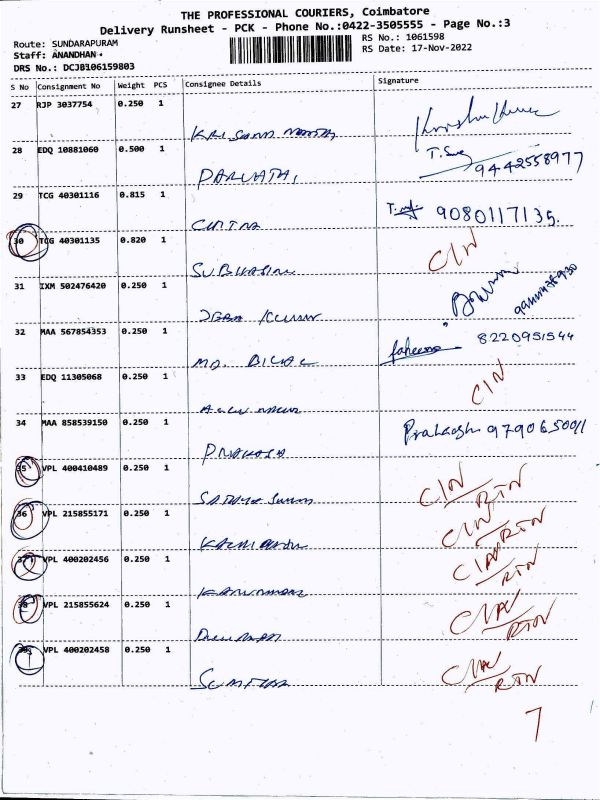 THE PROFESSIONAL COURIERS, Coimbatore
Delivery Runsheet - PCK - Phone No.:0422-3505555 - Page No.:3
Route: SUNDARAPURAM
Staff: ANANDHAN
DRS No.: DCJB106159803
RS No.: 1061598
RS Date: 17-Nov-2022
S No Consignment No Weight PCS Consignee Details Signature
27 RJP 3037754 0.250 1
28 EDQ 10881060 0.500 1 PARVATHI 9442558977
29 TCG 40301116 0.815 1 CHITRA 9080117135
30 TCG 40301135 0.820 1 SUBHASINI CIN
31 IXM 502476420 0.250 1
32 MAA 567854353 0.250 1 MD. BILAL faheema 8220951544
33 EDQ 11305068 0.250 1 CIN
34 MAA 858539150 0.250 1 PRAKASH Prakash 9790650011
35 VPL 400410489 0.250 1 CIN RTN
36 VPL 215855171 0.250 1 CIN RTN
37 VPL 400202456 0.250 1 CIN RTN
38 VPL 215855624 0.250 1 CIN RTN
39 VPL 400202458 0.250 1 SUMITHRA CIN RTN
7